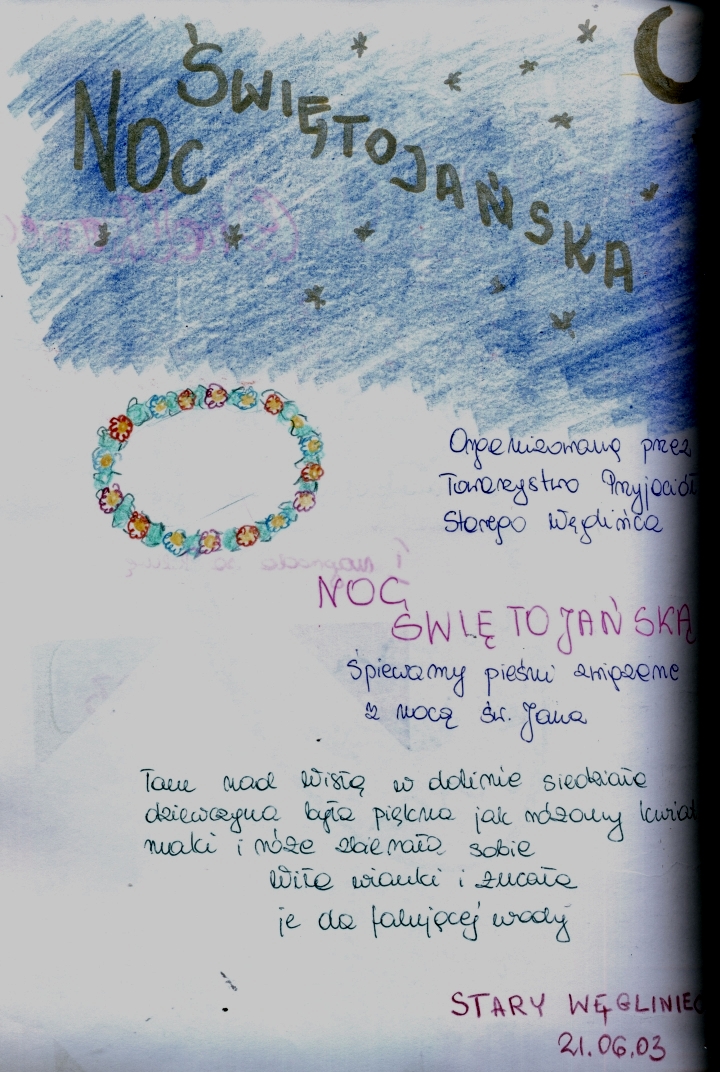 NOC ŚWIĘTOJAŃSKA
Organizowaną przez
Towarzystwo Przyjaciół
Starego Węglińca
NOC
ŚWIĘTOJAŃSKĄ
Śpiewamy pieśni związane
z nocą św. Jana
Tam nad Wisłą w dolinie siedziała
dziewczyna była piękna jak różowy kwiat
maki i róże zbierała sobie
Wiła wianki i rzucała
je do falującej wody
STARY WĘGLINIEC
21.06.03